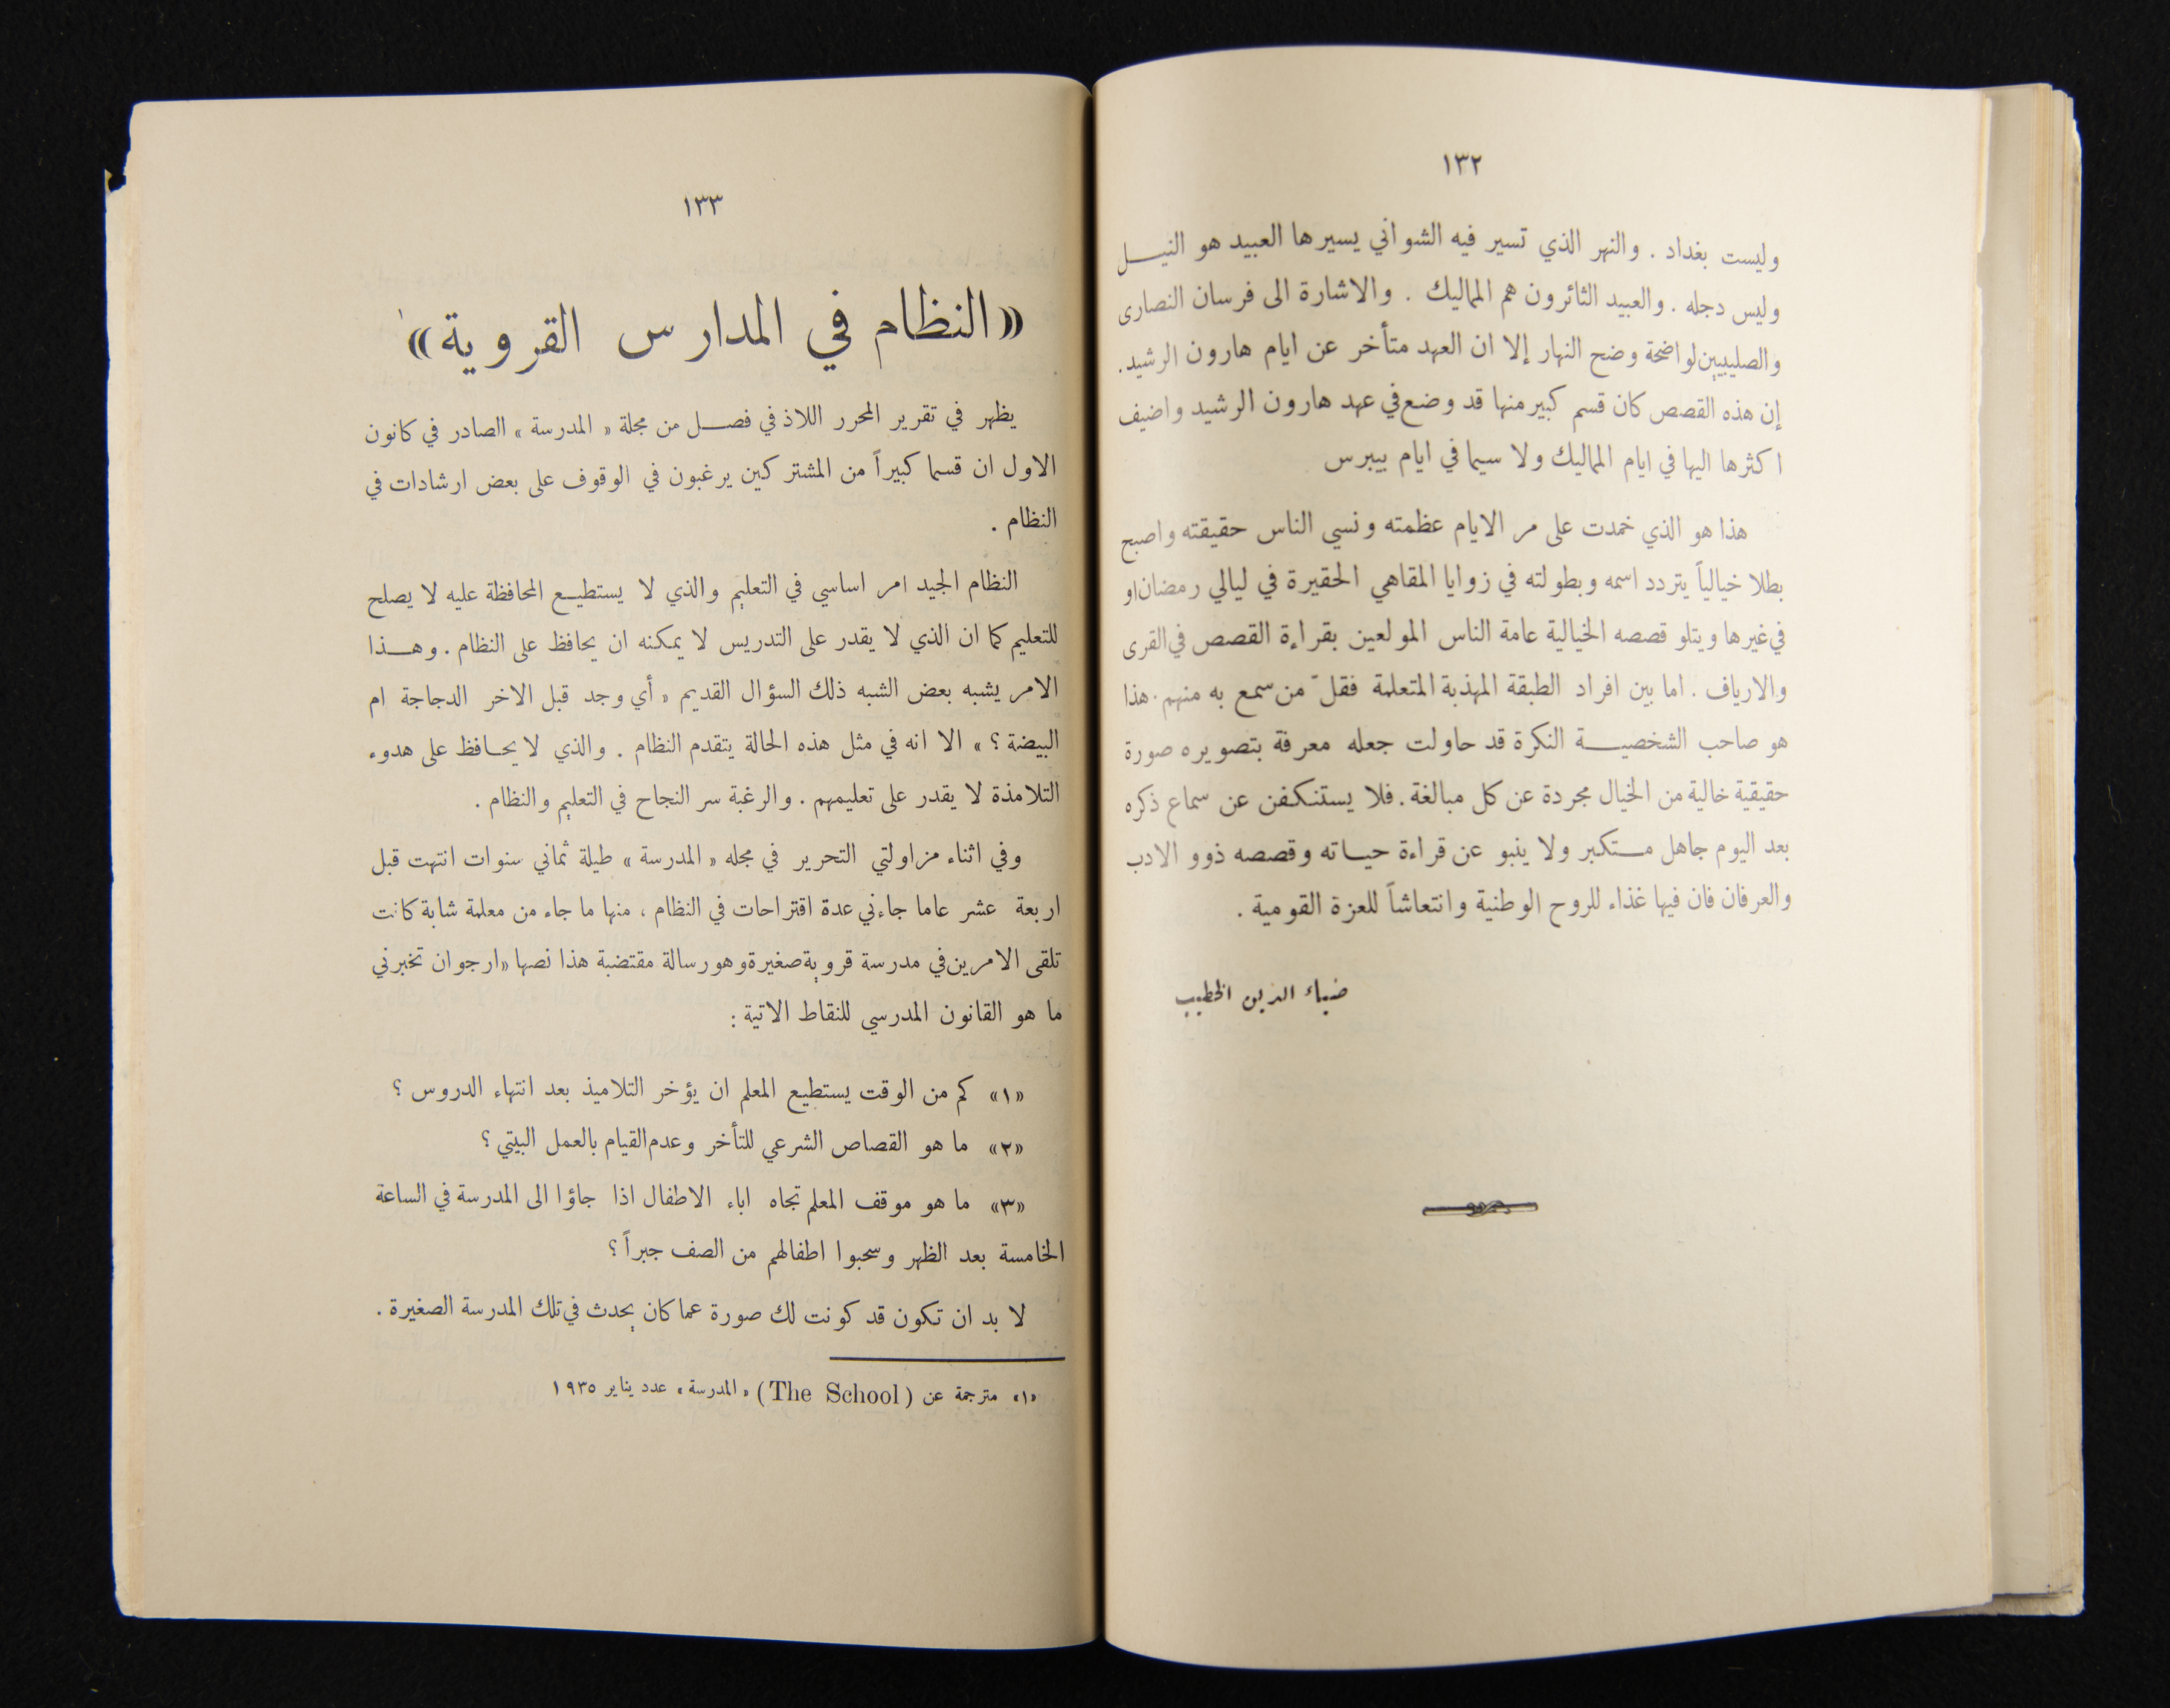 ١٣٢
وليست بغداد . والنهر الذي تسير فيه الشواني يسيرها العبيد هو النيــل
وليس دجله . والعبيد الثائرون هم المماليك . والاشارة الى فرسان النصارى
والصليبيين لواضحة وضح النهار إلا ان العهد متأخر عن ايام هارون الرشيد .
إن هذه القصص كان قسم كبير منها قد وضع في عهد هارون الرشيد واضيف
اكثرها اليها في ايام المماليك ولا سيما في ايام بيبرس
هذا هو الذي خمدت على مر الايام عظمته ونسي الناس حقيقته واصبح
بطلا خيالياً يتردد اسمه وبطولته في زوايا المقاهي الحقيرة في ليالي رمضان او
في غيرها ويتلو قصصه الخيالية عامة الناس المولعين بقراءة القصص في القرى
والارياف . اما بين افراد الطبقة المهذبة المتعلمة فقلّ من سمع به منهم . هذا
هو صاحب الشخصيــة النكرة قد حاولت جعله معرفة بتصويره صورة
حقيقية خالية من الخيال مجردة عن كل مبالغة . فلا يستنكفن عن سماع ذكره
بعد اليوم جاهل مستكبر ولا ينبو عن قراءة حياته وقصصه ذوو الادب
والعرفان فان فيها غذاء للروح الوطنية وانتعاشاً للعزة القومية .
ضياء الدين الخطيب
١٣٣
«النظام في المدارس القروية»١
يظهر في تقرير المحرر اللاذ في فصــل من مجلة « المدرسة » الصادر في كانون
الاول ان قسما كبيراً من المشتركين يرغبون في الوقوف على بعض ارشادات في
النظام .
النظام الجيد امر اساسي في التعليم والذي لا يستطيــع المحافظة عليه لا يصلح
للتعليم كما ان الذي لا يقدر على التدريس لا يمكنه ان يحافظ على النظام . وهــذا
الامر يشبه بعض الشبه ذلك السؤال القديم « أي وجد قبل الاخر الدجاجة ام
البيضة ؟ » الا انه في مثل هذه الحالة يتقدم النظام . والذي لا يحــافظ على هدوء
التلامذة لا يقدر على تعليمهم . والرغبة سر النجاح في التعليم والنظام .
وفي اثناء مزاولتي التحرير في مجله « المدرسة » طيلة ثماني سنوات انتهت قبل
اربعة عشر عاما جاءني عدة اقتراحات في النظام ، منها ما جاء من معلمة شابة كانت
تلقى الامرين في مدرسة قروية صغيرة وهو رسالة مقتضبة هذا نصها « ارجو ان تخبرني
ما هو القانون المدرسي للنقاط الاتية :
«١» كم من الوقت يستطيع المعلم ان يؤخر التلاميذ بعد انتهاء الدروس ؟
«٢» ما هو القصاص الشرعي للتأخر وعدم القيام بالعمل البيتي ؟
«٣» ما هو موقف المعلم تجاه اباء الاطفال اذا جاؤا الى المدرسة في الساعة
الخامسة بعد الظهر وسحبوا اطفالهم من الصف جبراً ؟
لا بد ان تكون قد كونت لك صورة عما كان يحدث في تلك المدرسة الصغيرة .
«١» مترجمة عن (The School) « المدرسة » عدد يناير ١٩٣٥